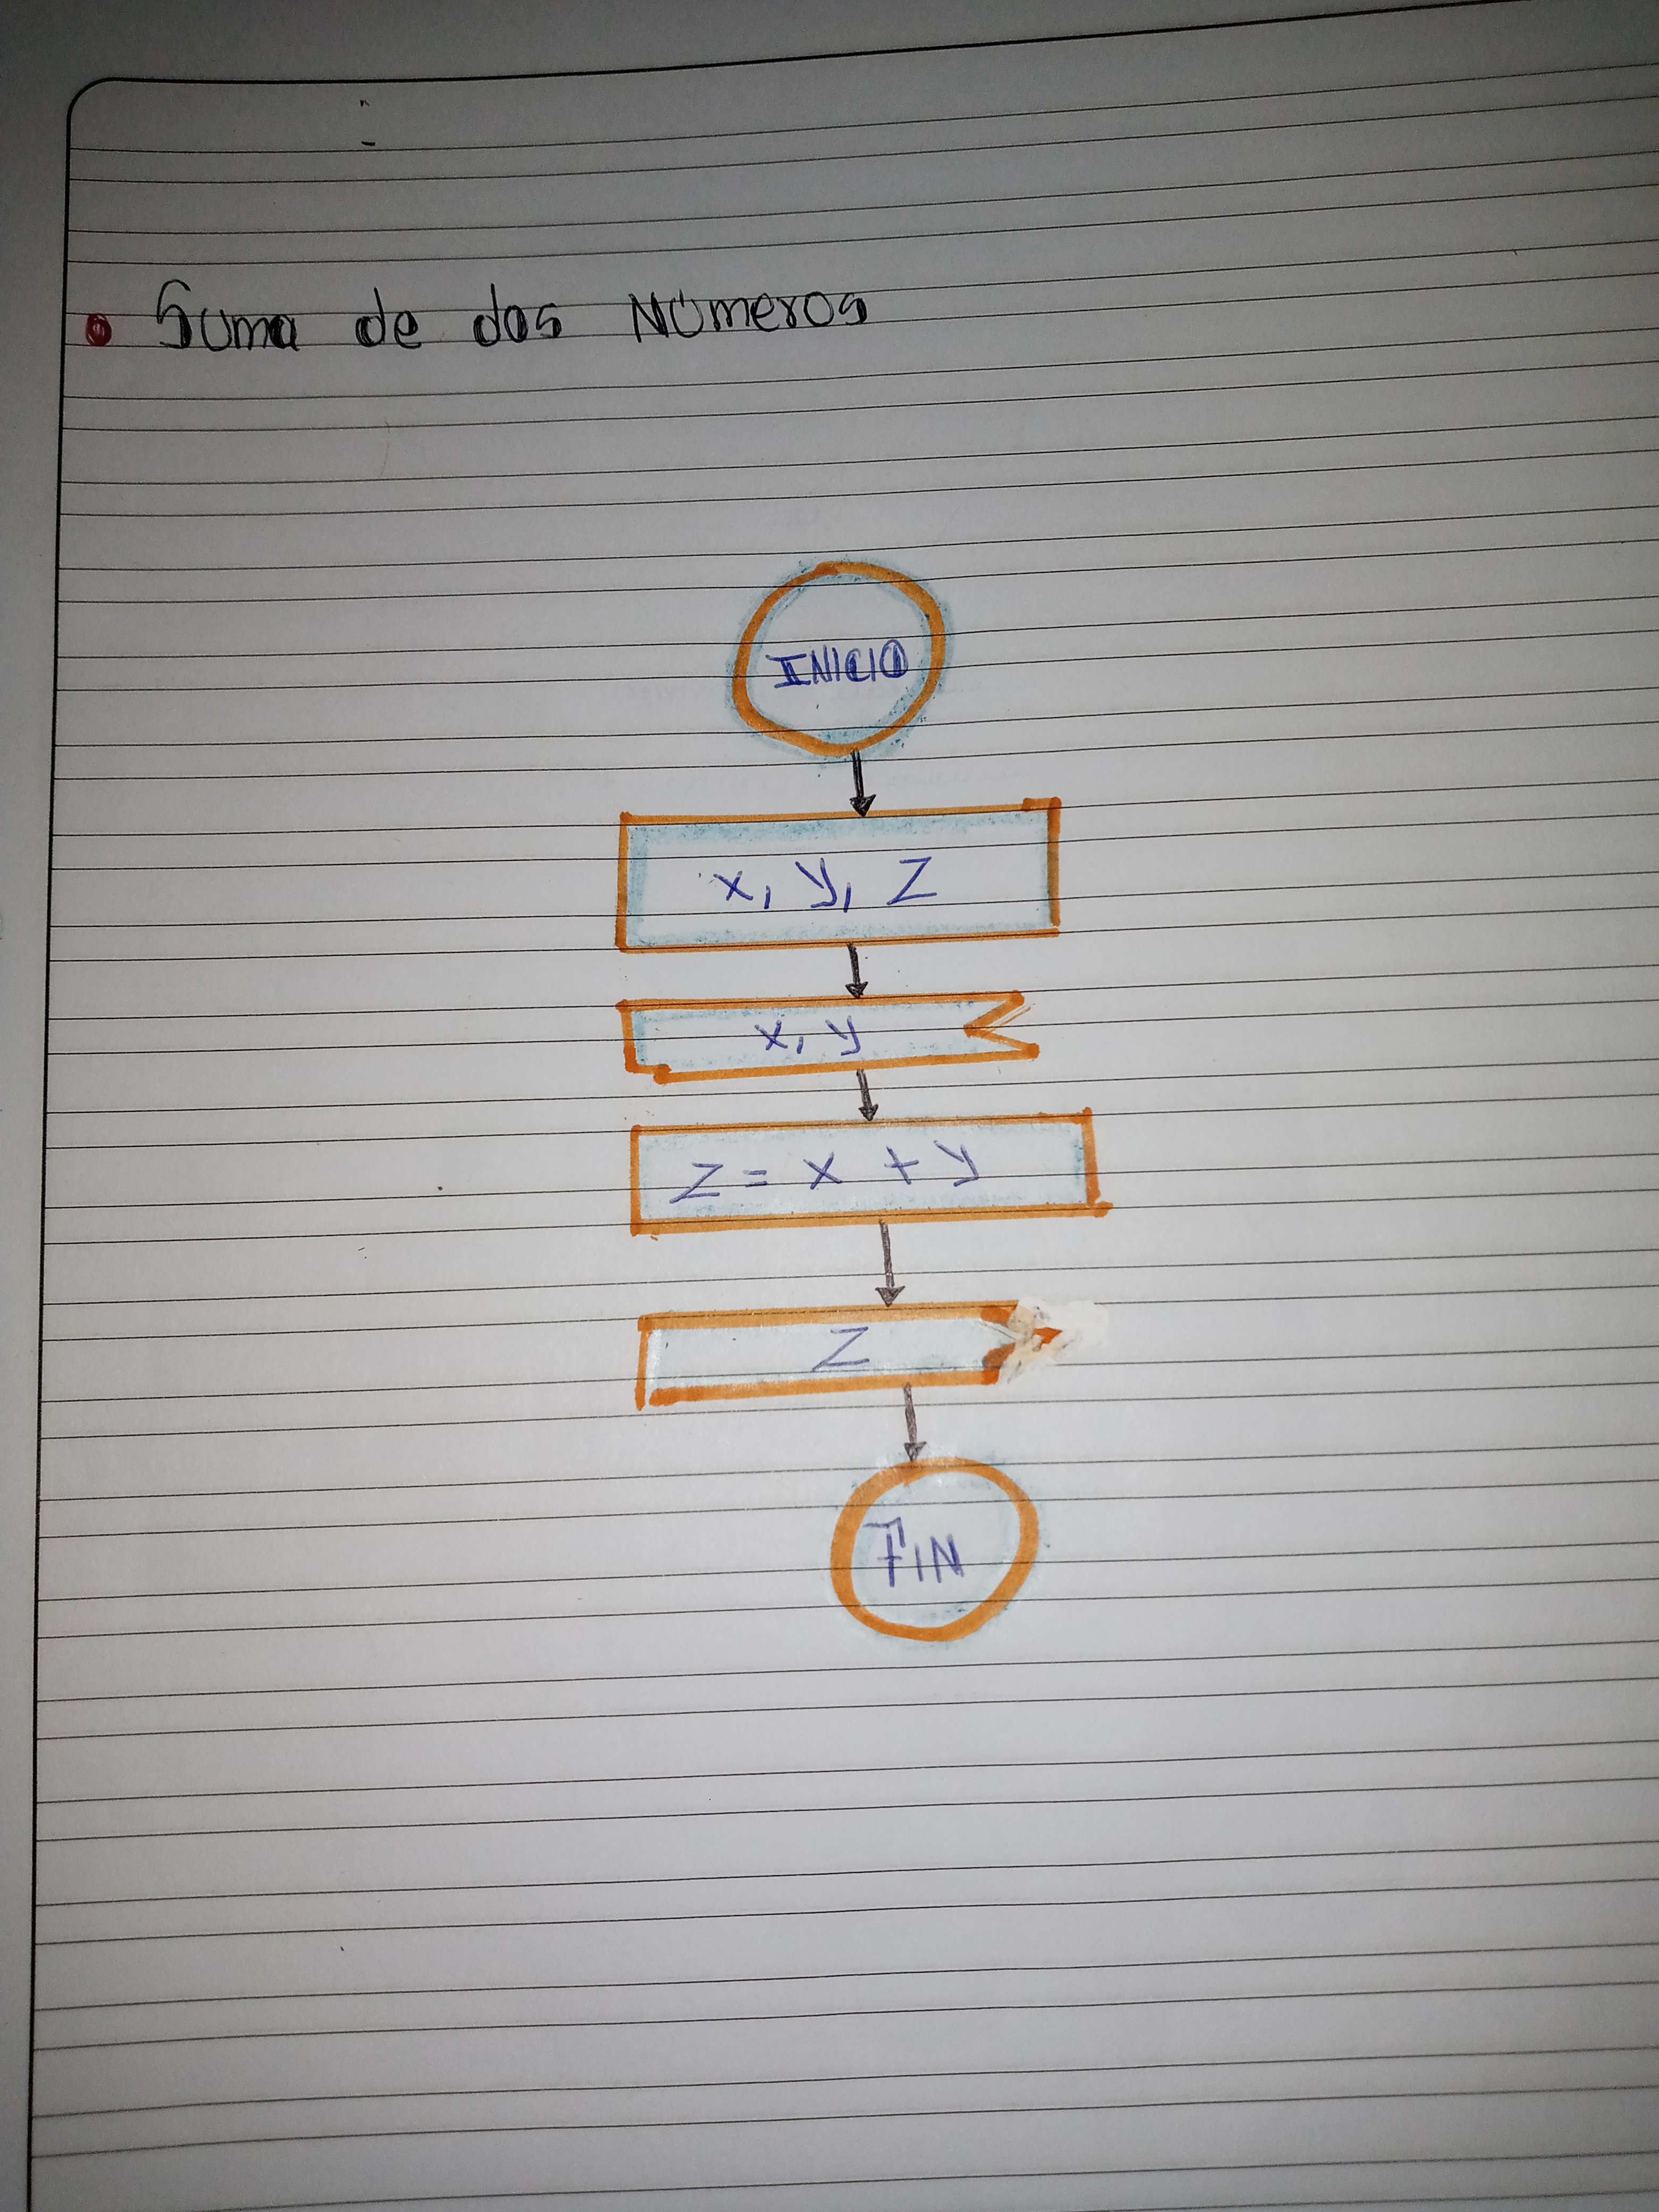 Suma de dos Números
INICIO
x, y, z
x, y
z = x + y
z
FIN